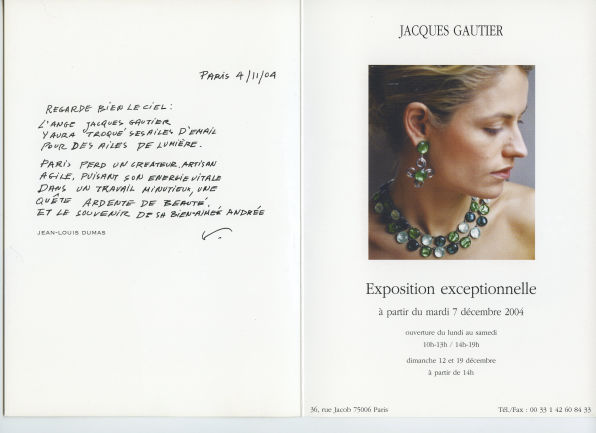 PARIS 4/11/04
REGARDE BIEN LE CIEL :
L'ANGE JACQUES GAUTIER
Y AURA TROQUÉ SES AILES D'EMAIL
POUR DES AILES DE LUMIÈRE.
PARIS PERD UN CREATEUR, ARTISAN
AGILE, PUISANT SON ENERGIE VITALE
DANS UN TRAVAIL MINUTIEUX, UNE
QUÊTE ARDENTE DE BEAUTÉ.
ET LE SOUVENIR DE SA BIEN-AIMÉE ANDRÉE
JEAN-LOUIS DUMAS
JACQUES GAUTIER
Exposition exceptionnelle
à partir du mardi 7 décembre 2004
ouverture du lundi au samedi
10h-13h / 14h-19h
dimanche 12 et 19 décembre
à partir de 14h
36, rue Jacob 75006 Paris
Tél./Fax : 00 33 1 42 60 84 33